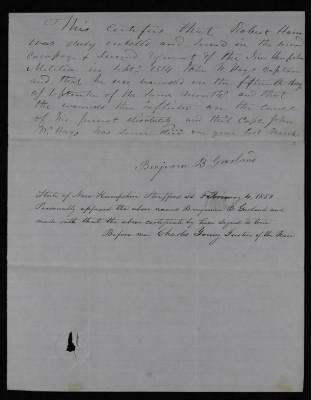 This certifies that Robert Ham
was duly enlisted and served in the same
Company & Second Regiment of the New Hampshire
Militia in Sept. 1814 John W Hays Captain
and that he was wounded on the fifteenth day
of September of the same month and that
the wounds then inflicted are the cause
of his present disability and that Capt. John
W. Hays has since died one year last March
Benjamin B Garland
State of New Hampshire Strafford ss February 4, 1851
Personally appeared the above named Benjamin B. Garland and
made oath that the above certificate by him signed is true
Before me Charles Young Justice of the Peace